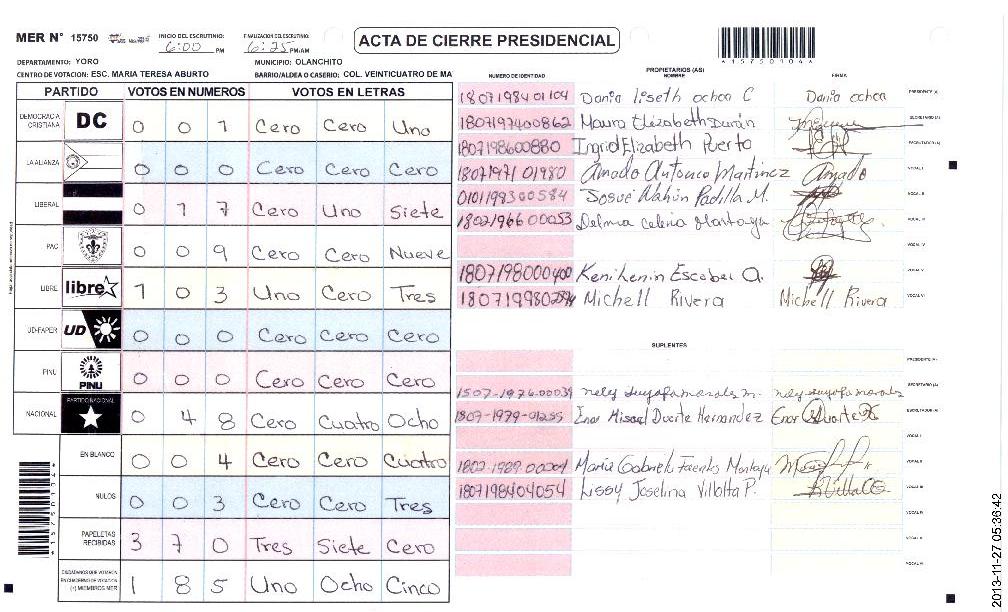 MER N° 15750 INICIO DEL ESCRUTINIO: 6:00 PM FINALIZACION ESCRUTINIO: 6:25 PM/AM
ACTA DE CIERRE PRESIDENCIAL
*15750104*
DEPARTAMENTO: YORO MUNICIPIO: OLANCHITO
CENTRO DE VOTACION: ESC. MARIA TERESA ABURTO BARRIO/ALDEA O CASERIO: COL. VEINTICUATRO DE MA
PARTIDO VOTOS EN NUMEROS VOTOS EN LETRAS
DEMOCRACIA CRISTIANA DC 0 0 1 Cero Cero Uno
LA ALIANZA 0 0 0 Cero Cero Cero
LIBERAL 0 1 7 Cero Uno Siete
PAC 0 0 9 Cero Cero Nueve
LIBRE libre 1 0 3 Uno Cero Tres
UD-FAPER UD 0 0 0 Cero Cero Cero
PINU PINU 0 0 0 Cero Cero Cero
NACIONAL PARTIDO NACIONAL 0 4 8 Cero Cuatro Ocho
EN BLANCO 0 0 4 Cero Cero Cuatro
NULOS 0 0 3 Cero Cero Tres
PAPELETAS RECIBIDAS 3 7 0 Tres Siete Cero
CIUDADANOS QUE VOTARON EN CUADERNO DE VOTACION (+) MIEMBROS MER 1 8 5 Uno Ocho Cinco
NUMERO DE IDENTIDAD PROPIETARIOS (AS) NOMBRE FIRMA
1807198401104 Dania liseth ochoa C Dania ochoa PRESIDENTE (A)
1807197400862 Maura Elizabeth Durán SECRETARIO (A)
1807198600880 Ingrid Elizabeth Puerto ESCRUTADOR (A)
1807197101980 Amado Antonio Martinez Amado VOCAL I
0101198300584 Josué Nahún Padilla M. VOCAL II
1802196600053 Delmia celenia Montoya VOCAL III
VOCAL IV
1807198000400 Kenihenin Escobar A. VOCAL V
Michell Rivera Michell Rivera VOCAL VI
SUPLENTES
PRESIDENTE (A)
1507-1976-00039 nely suyapa morales m. nely suyapa morales SECRETARIO (A)
1807-1979-01255 Enor Misael Duarte Hernandez Enor Duarte ESCRUTADOR (A)
VOCAL I
1802-1989-00204 Maria Gabriela Fuentes Montoya VOCAL II
1807198404054 Lissy Joselina Villalta P. VOCAL III
VOCAL IV
VOCAL V
VOCAL VI
2013-11-27 05:36:42